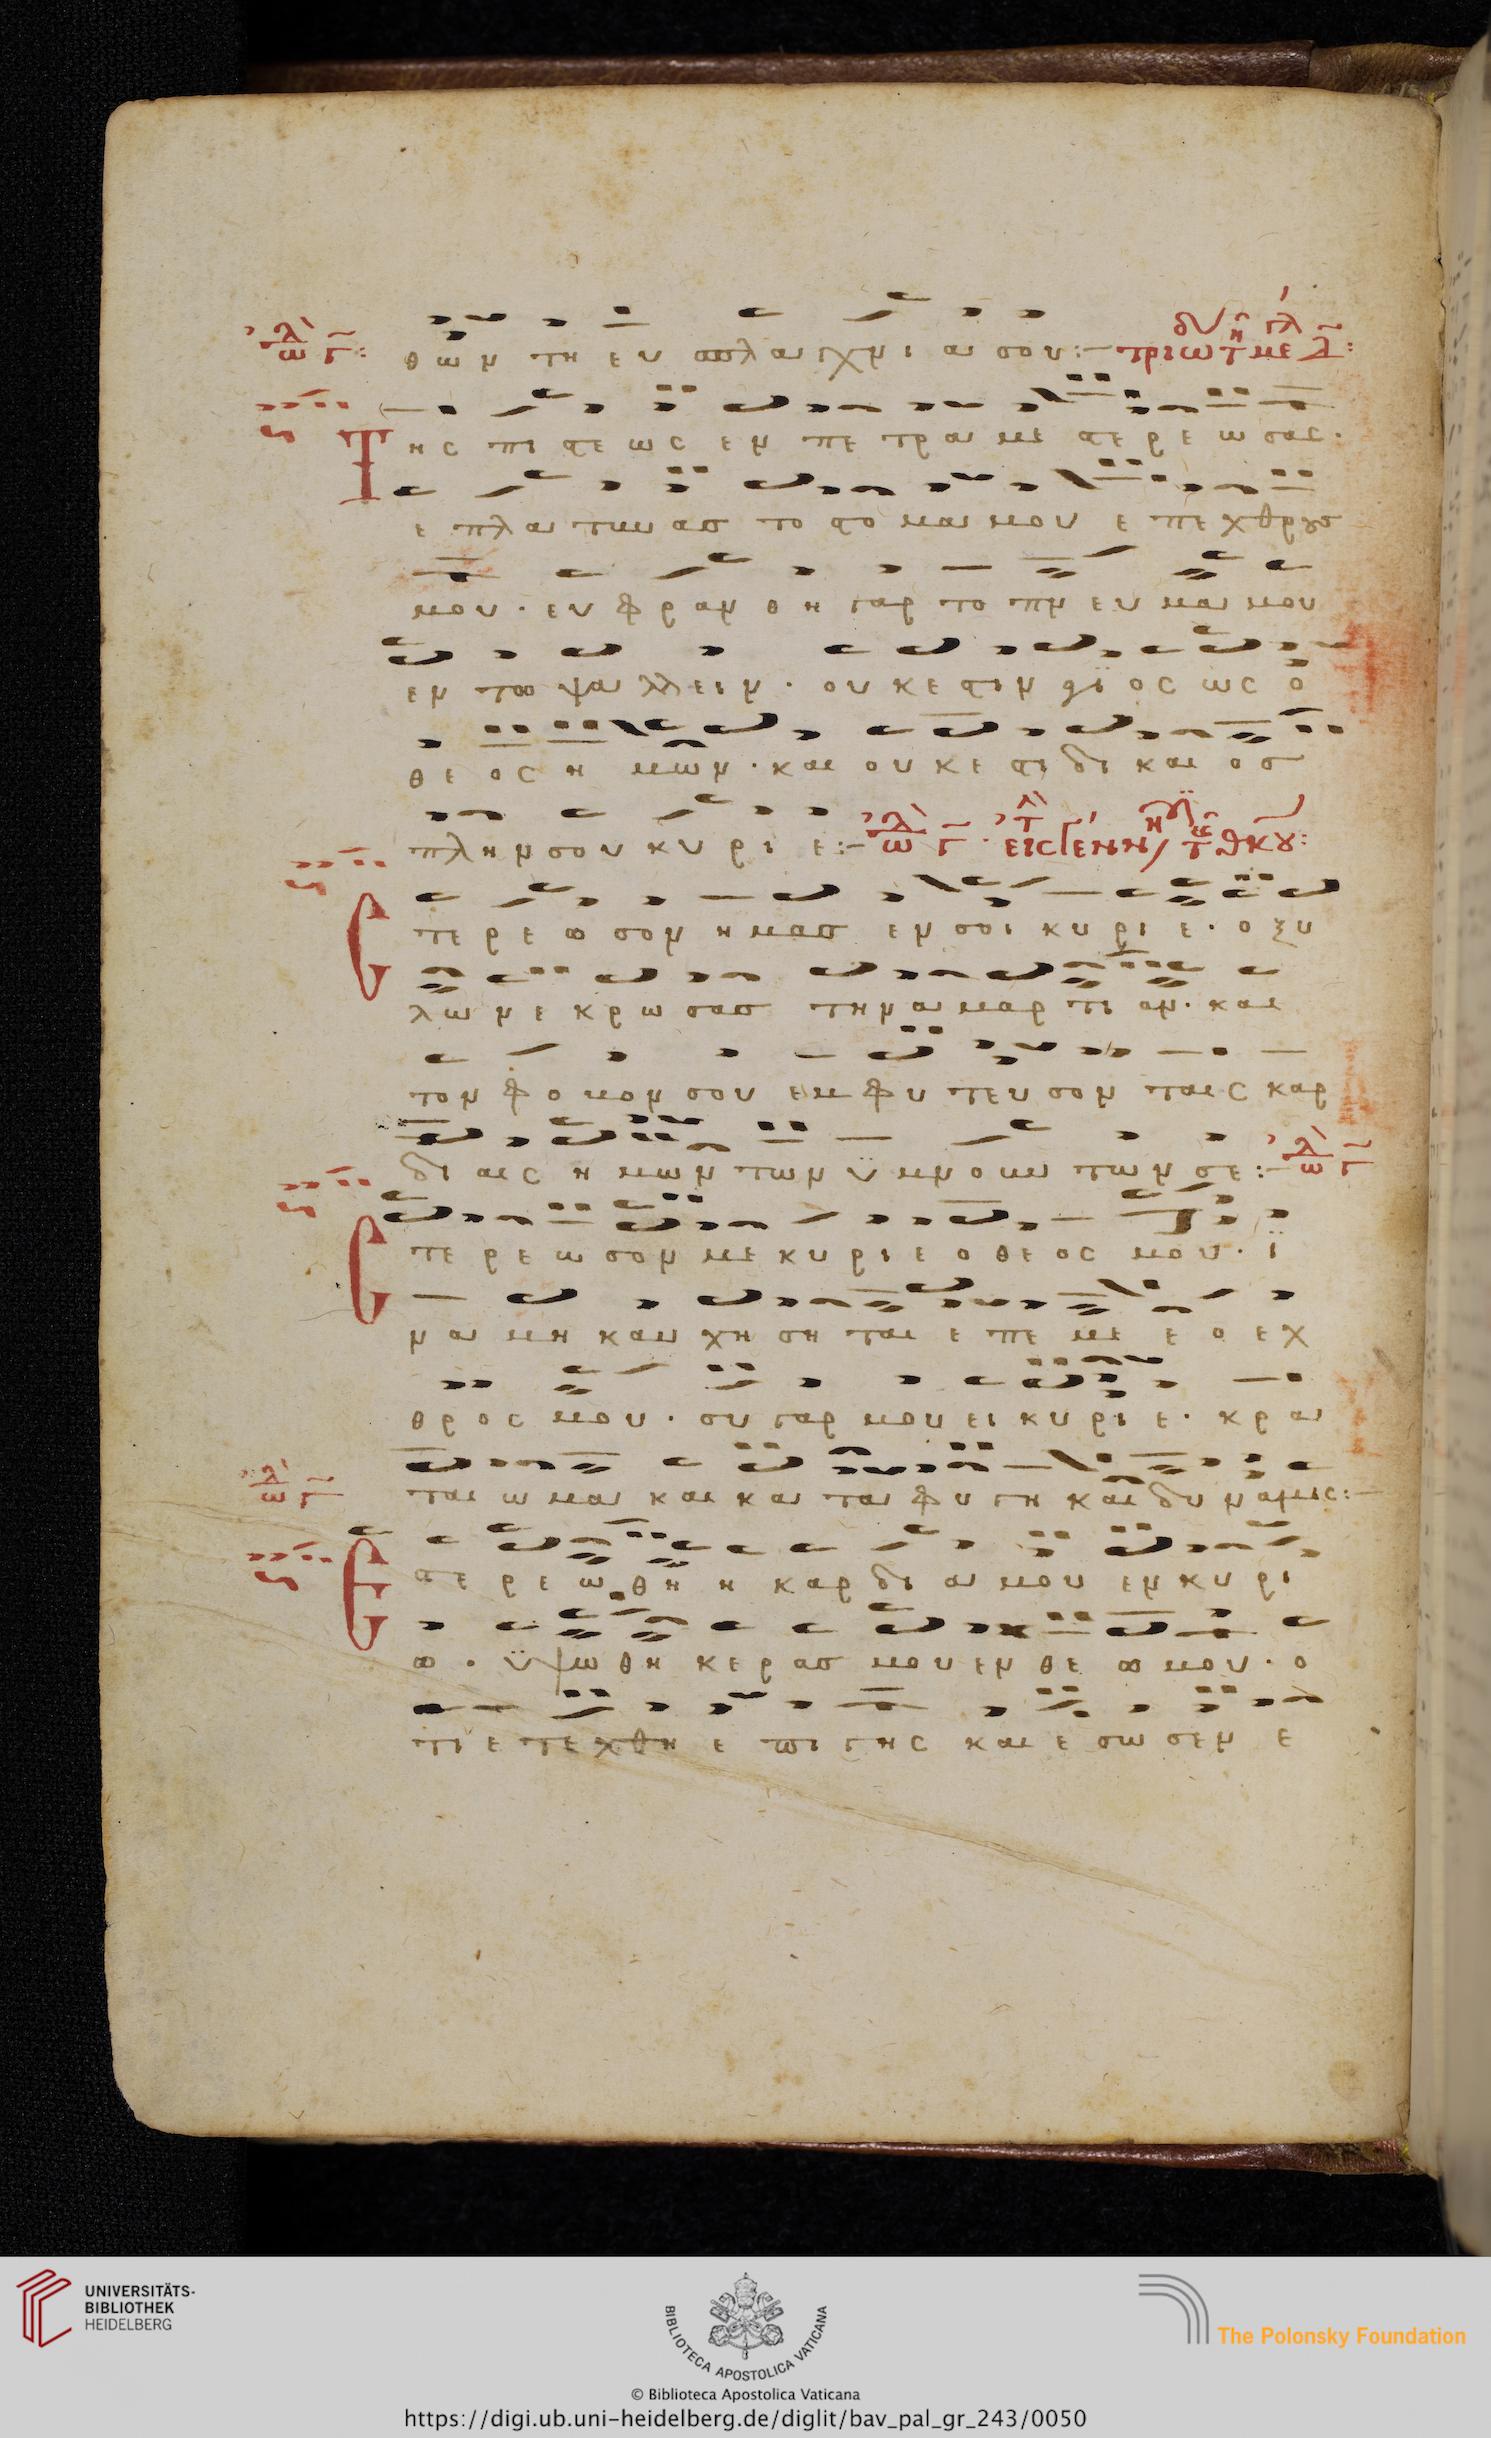 θων τη ευ σπλα γχνι α σου:- τριωτ με λ:
Της πι στε ως εν πε τρα με στε ρε ω σας·
ε πλα τυν ας το στο μα μου ε πε χθρους
μου· ευ φραν θη γαρ το πν ευ μα μου
εν τω ψα λλειν· ου κε στιν αγι ος ως ο
θε ος η μων· και ου κε στι δι και ος
πλην σου κυ ρι ε:-
Σ τε ρε ω σον η μας εν σοι κυ ρι ε· ο ξυ
λω νε κρω σας την α μαρ τι αν· και
τον φο βον σου εμ φυ τευ σον ταις καρ
δι αις η μων των υ μνουν των σε:-
Σ τε ρε ω σον με κυ ρι ε ο θε ος μου· ϊ
να μη καυ χη ση ται ε πε με ε ο εχ
θρος μου· συ γαρ μου ει κυ ρι ε· κρα
ται ω μα και κα τα φυ γη και δυ ναμις:-
Ε στε ρε ω θη η καρ δι α μου εν κυ ρι
ω· ϋ ψω θη κε ρας μου εν θε ω μου· ο
τι ε τε χθη ε πι γης και ε σω σεν ε
UNIVERSITÄTS-
BIBLIOTHEK
HEIDELBERG
BIBLIOTECA APOSTOLICA VATICANA
The Polonsky Foundation
© Biblioteca Apostolica Vaticana
https://digi.ub.uni-heidelberg.de/diglit/bav_pal_gr_243/0050